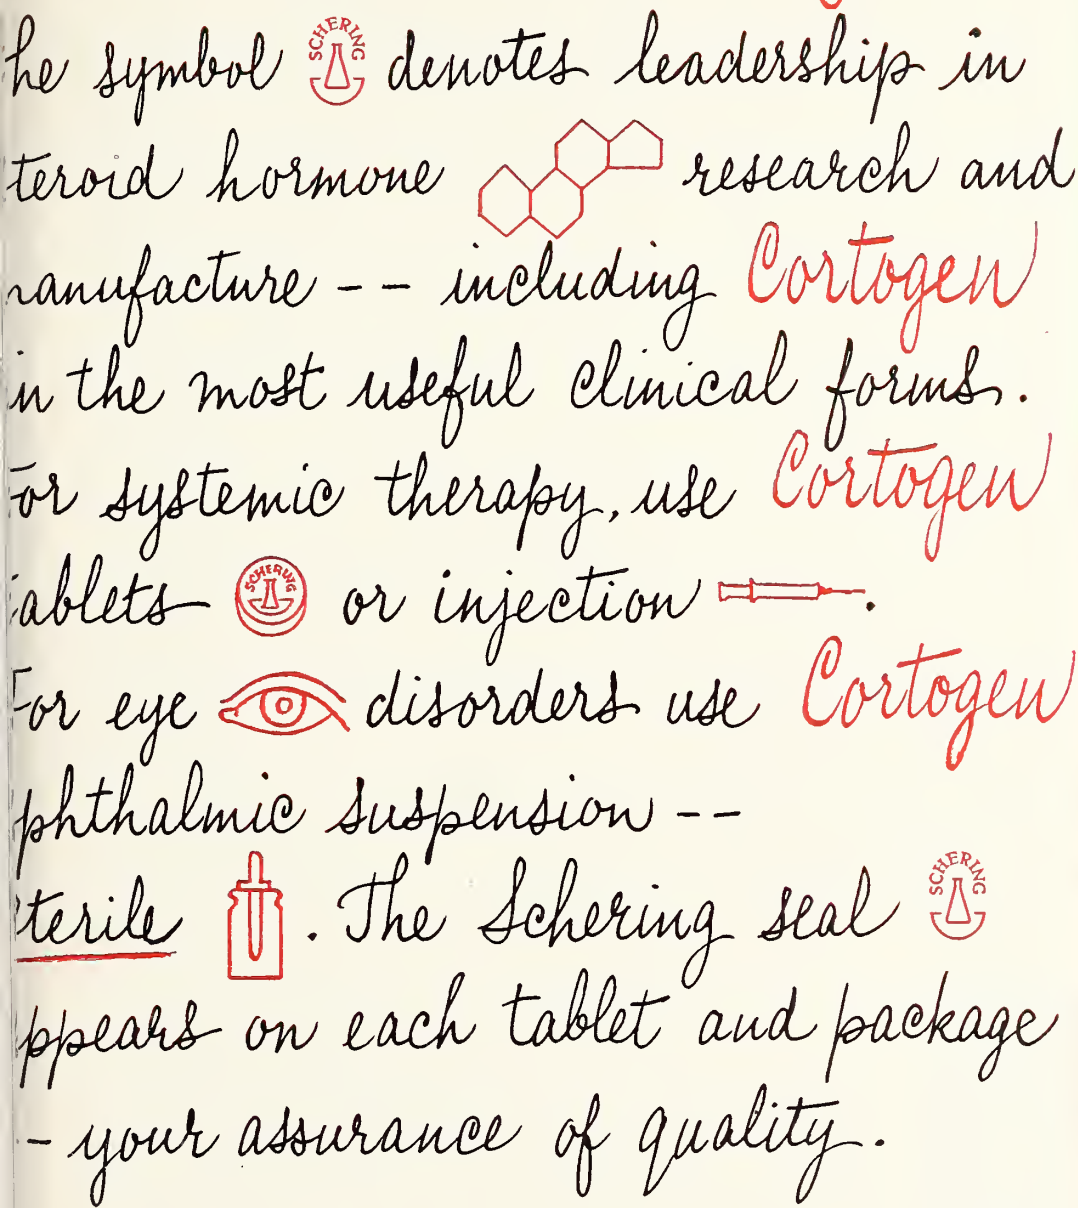 he symbol SCHERING denotes leadership in
teroid hormone research and
anufacture -- including Cortogen
in the most useful clinical forms.
For systemic therapy, use Cortogen
ablets SCHERING or injection.
For eye disorders use Cortogen
phthalmic suspension --
terile. The Schering seal SCHERING
ppears on each tablet and package
- your assurance of quality.